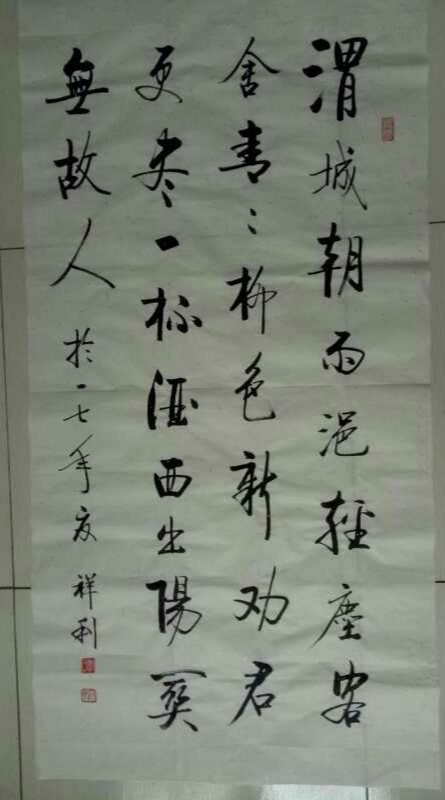 渭城朝雨浥輕塵客
舍青〻柳色新劝君
更尽一杯酒西出陽關
無故人
於一七年夜
祥利